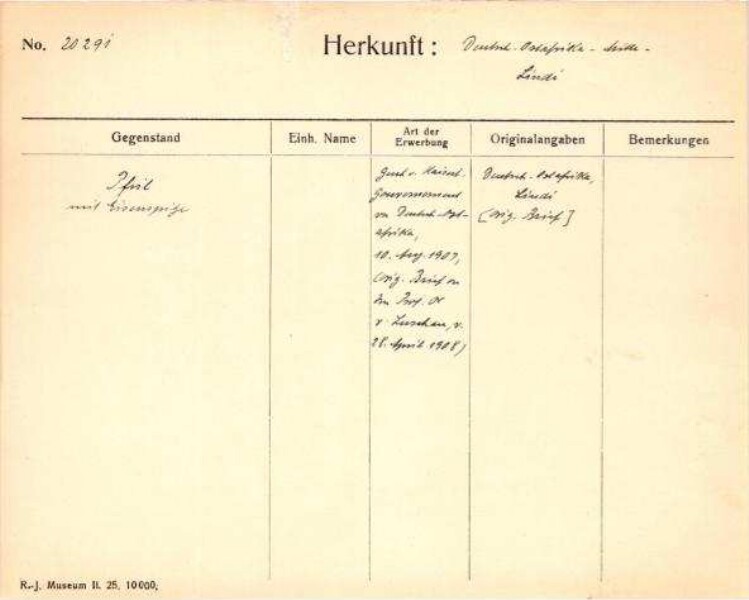 No. 20291
Herkunft: Deutsch-Ostafrika -
Lindi
Gegenstand
Einh. Name
Art der Erwerbung
Originalangaben
Bemerkungen
Pfeil
mit Eisenspitze
Gesch. v. Kaiserl.
Gouvernement
von Deutsch-Ost-
afrika,
10. Aug. 1907,
(Orig. Brief von
Prof. Dr
v. Luschan, v.
28. April 1908)
Deutsch-Ostafrika,
Lindi
[Orig. Brief]
R.-J. Museum II. 25. 10000,